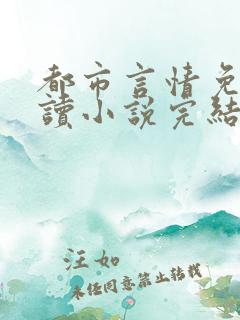 都市言情免
讀小說完結
汪如
未经同意禁止转载